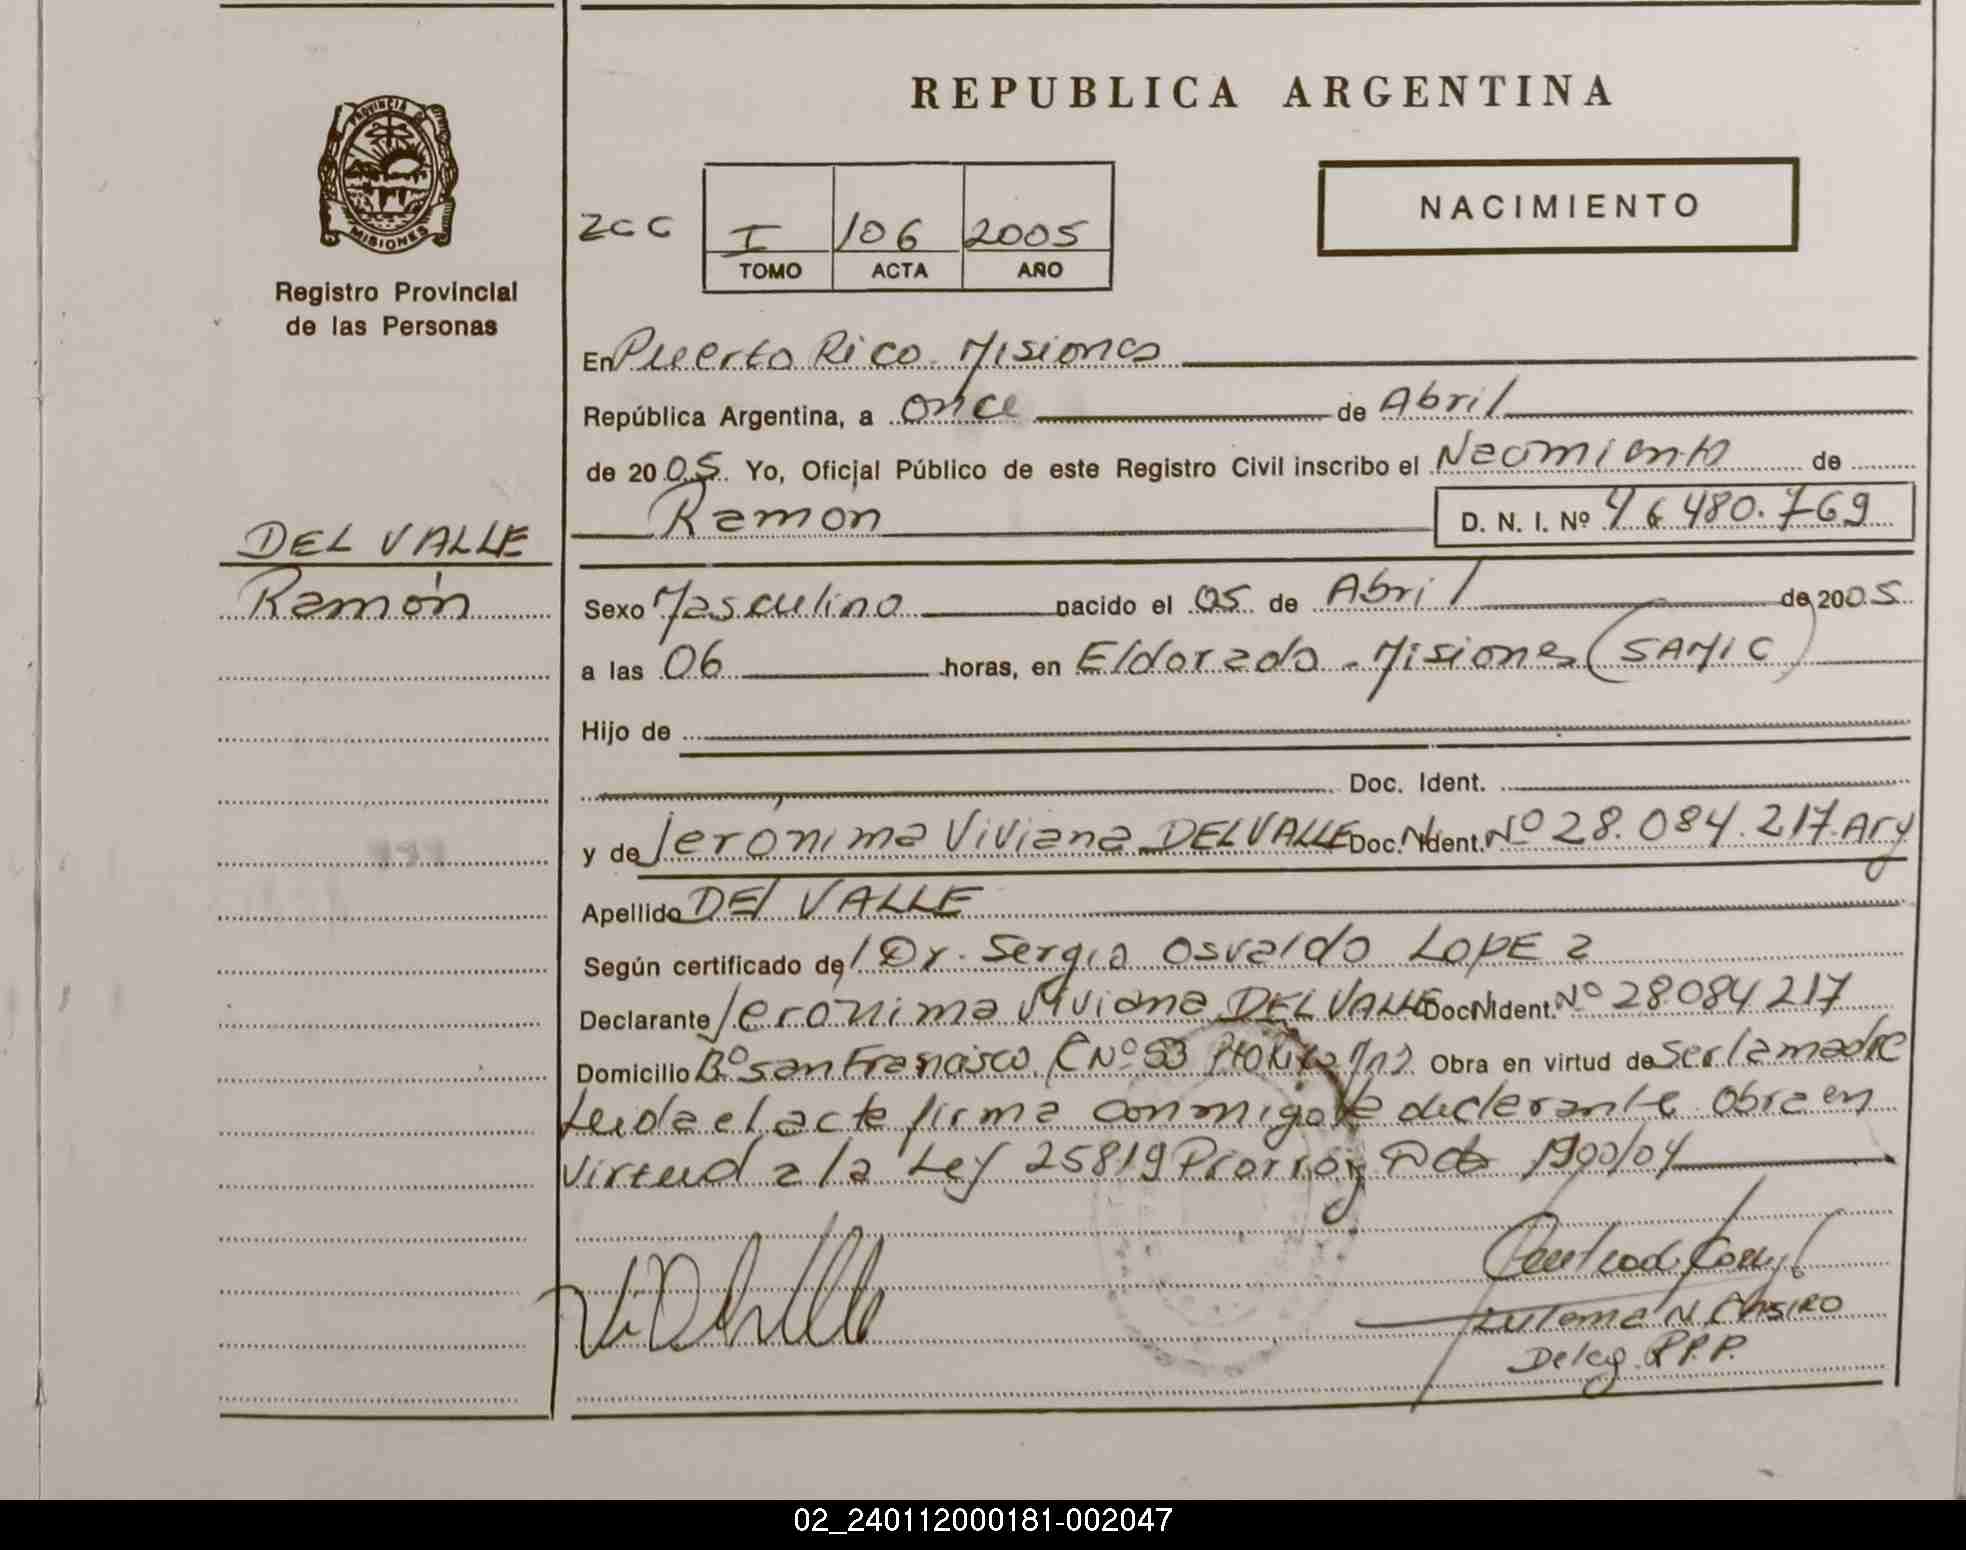 REPUBLICA ARGENTINA
PROVINCIA DE
MISIONES
Registro Provincial
de las Personas
NACIMIENTO
ZCC I 106 2005
TOMO ACTA AÑO
En Puerto Rico. Misiones
República Argentina, a once de Abril
de 2005. Yo, Oficial Público de este Registro Civil inscribo el Nacimiento de
Ramon D. N. I. Nº 46.480.769
DEL VALLE
Ramón
Sexo Masculino nacido el 05 de Abril de 2005
a las 06 horas, en Eldorado - Misiones (SAMIC)
Hijo de
Doc. Ident.
y de Jerónima Viviana DEL VALLE Doc. N. Ident. Nº 28.084.217. Arg
Apellido DEL VALLE
Según certificado del Dr. Sergio Osvaldo LOPEZ
Declarante Jerónima Viviana DEL VALLE Doc. N. Ident. Nº 28.084.217
Domicilio Bº San Francisco C Nº 53 Pto Rico Mns. Obra en virtud de ser la madre
Leida el acta firma conmigo la declarante. Obra en
virtud a la Ley 25819 Prorrog Dto 1900/04
N. CASIRO
Deleg. R.P.P.
02_240112000181-002047